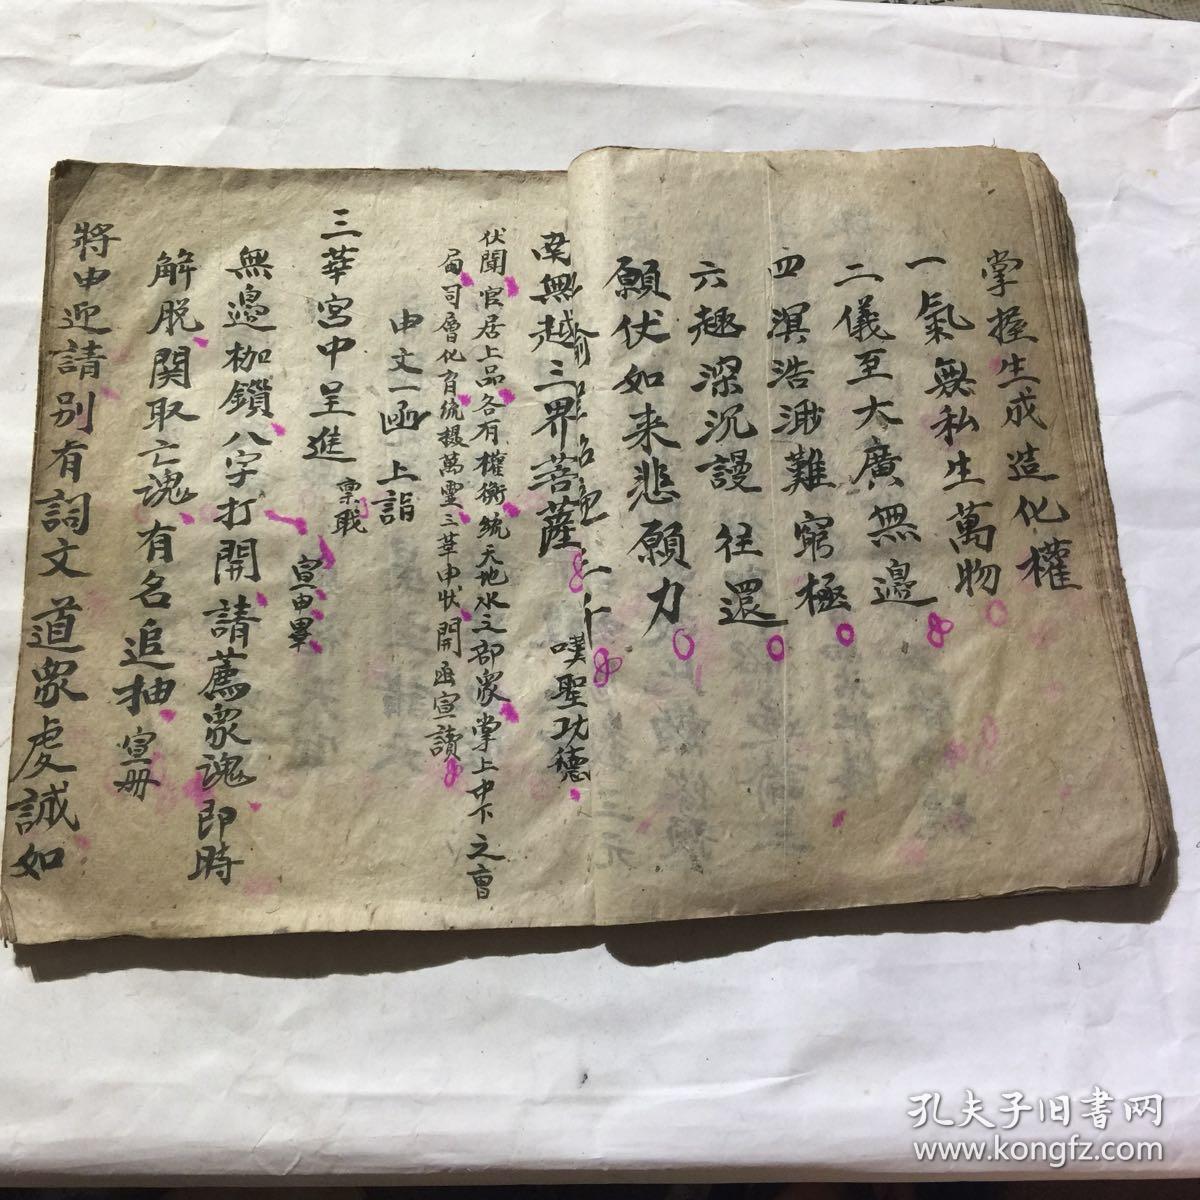 掌握生成造化權
一氣無私生萬物
二儀至大廣無邊
四溟浩渺難窮極
六趣深沉謾往還
願伏如来悲願力
南無越三界菩薩
嘆聖功德
伏聞官居上品各有權衡統天地水之部衆掌上中下之曹
局司層化育統摄萬靈三華中状開函宣讀
申文一函上詣
三華宮中呈進
宣申畢
無邊枷鎖八字打開請薦衆魂即時
解脱関取亡魂有名追抽宣册
將申迎請别有詞文道衆虔誠如
孔夫子旧書网
www.kongfz.com